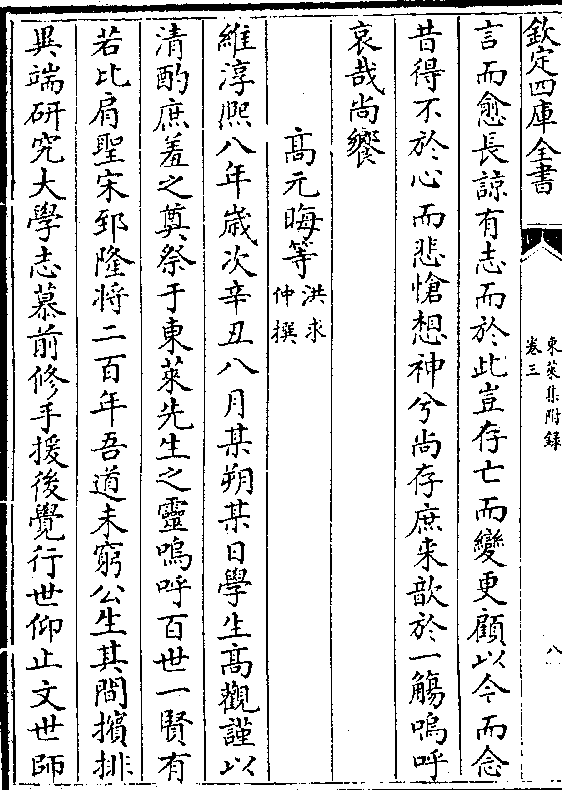 欽定四庫全書
東萊集附録
卷三
八
言而愈長諒有志而於此豈存亡而變更顧以今而念
昔得不於心而悲愴想神兮尚存庶来歆於一觴嗚呼
哀哉尚饗
高元晦等洪求仲撰
維淳熙八年歳次辛丑八月某朔某日學生髙觀謹以
清酌庶羞之奠祭于東萊先生之靈嗚呼百世一賢有
若比肩聖宋郅隆将二百年吾道未窮公生其間擯排
異端研究大學志慕前修手援後覺行世仰止文世師